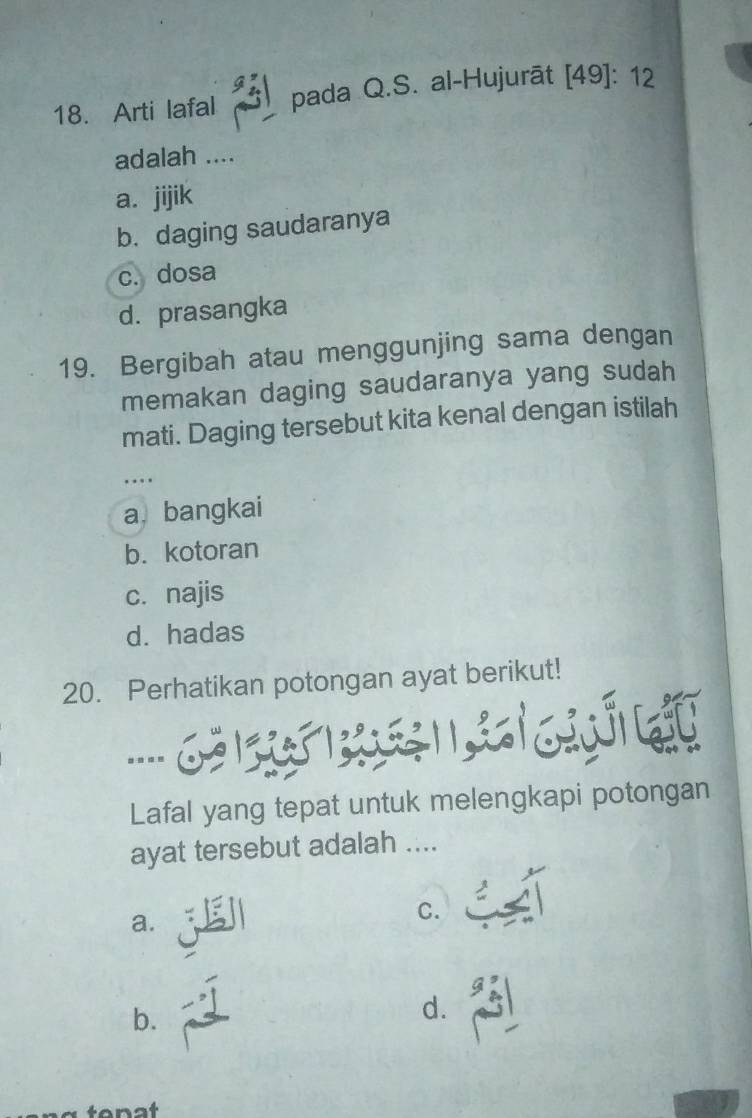 18. Arti lafal اِثْمٌ pada Q.S. al-Hujurāt [49]: 12
adalah ....
a. jijik
b. daging saudaranya
c. dosa
d. prasangka
19. Bergibah atau menggunjing sama dengan
memakan daging saudaranya yang sudah
mati. Daging tersebut kita kenal dengan istilah
....
a. bangkai
b. kotoran
c. najis
d. hadas
20. Perhatikan potongan ayat berikut!
يٰٓاَيُّهَا الَّذِيْنَ اٰمَنُوا اجْتَنِبُوْا كَثِيْرًا مِّنَ ....
Lafal yang tepat untuk melengkapi potongan
ayat tersebut adalah ....
a. الظَّنِّ c. اَيُحِبُّ
b. لَحْمَ d. اِثْمٌ
tepat